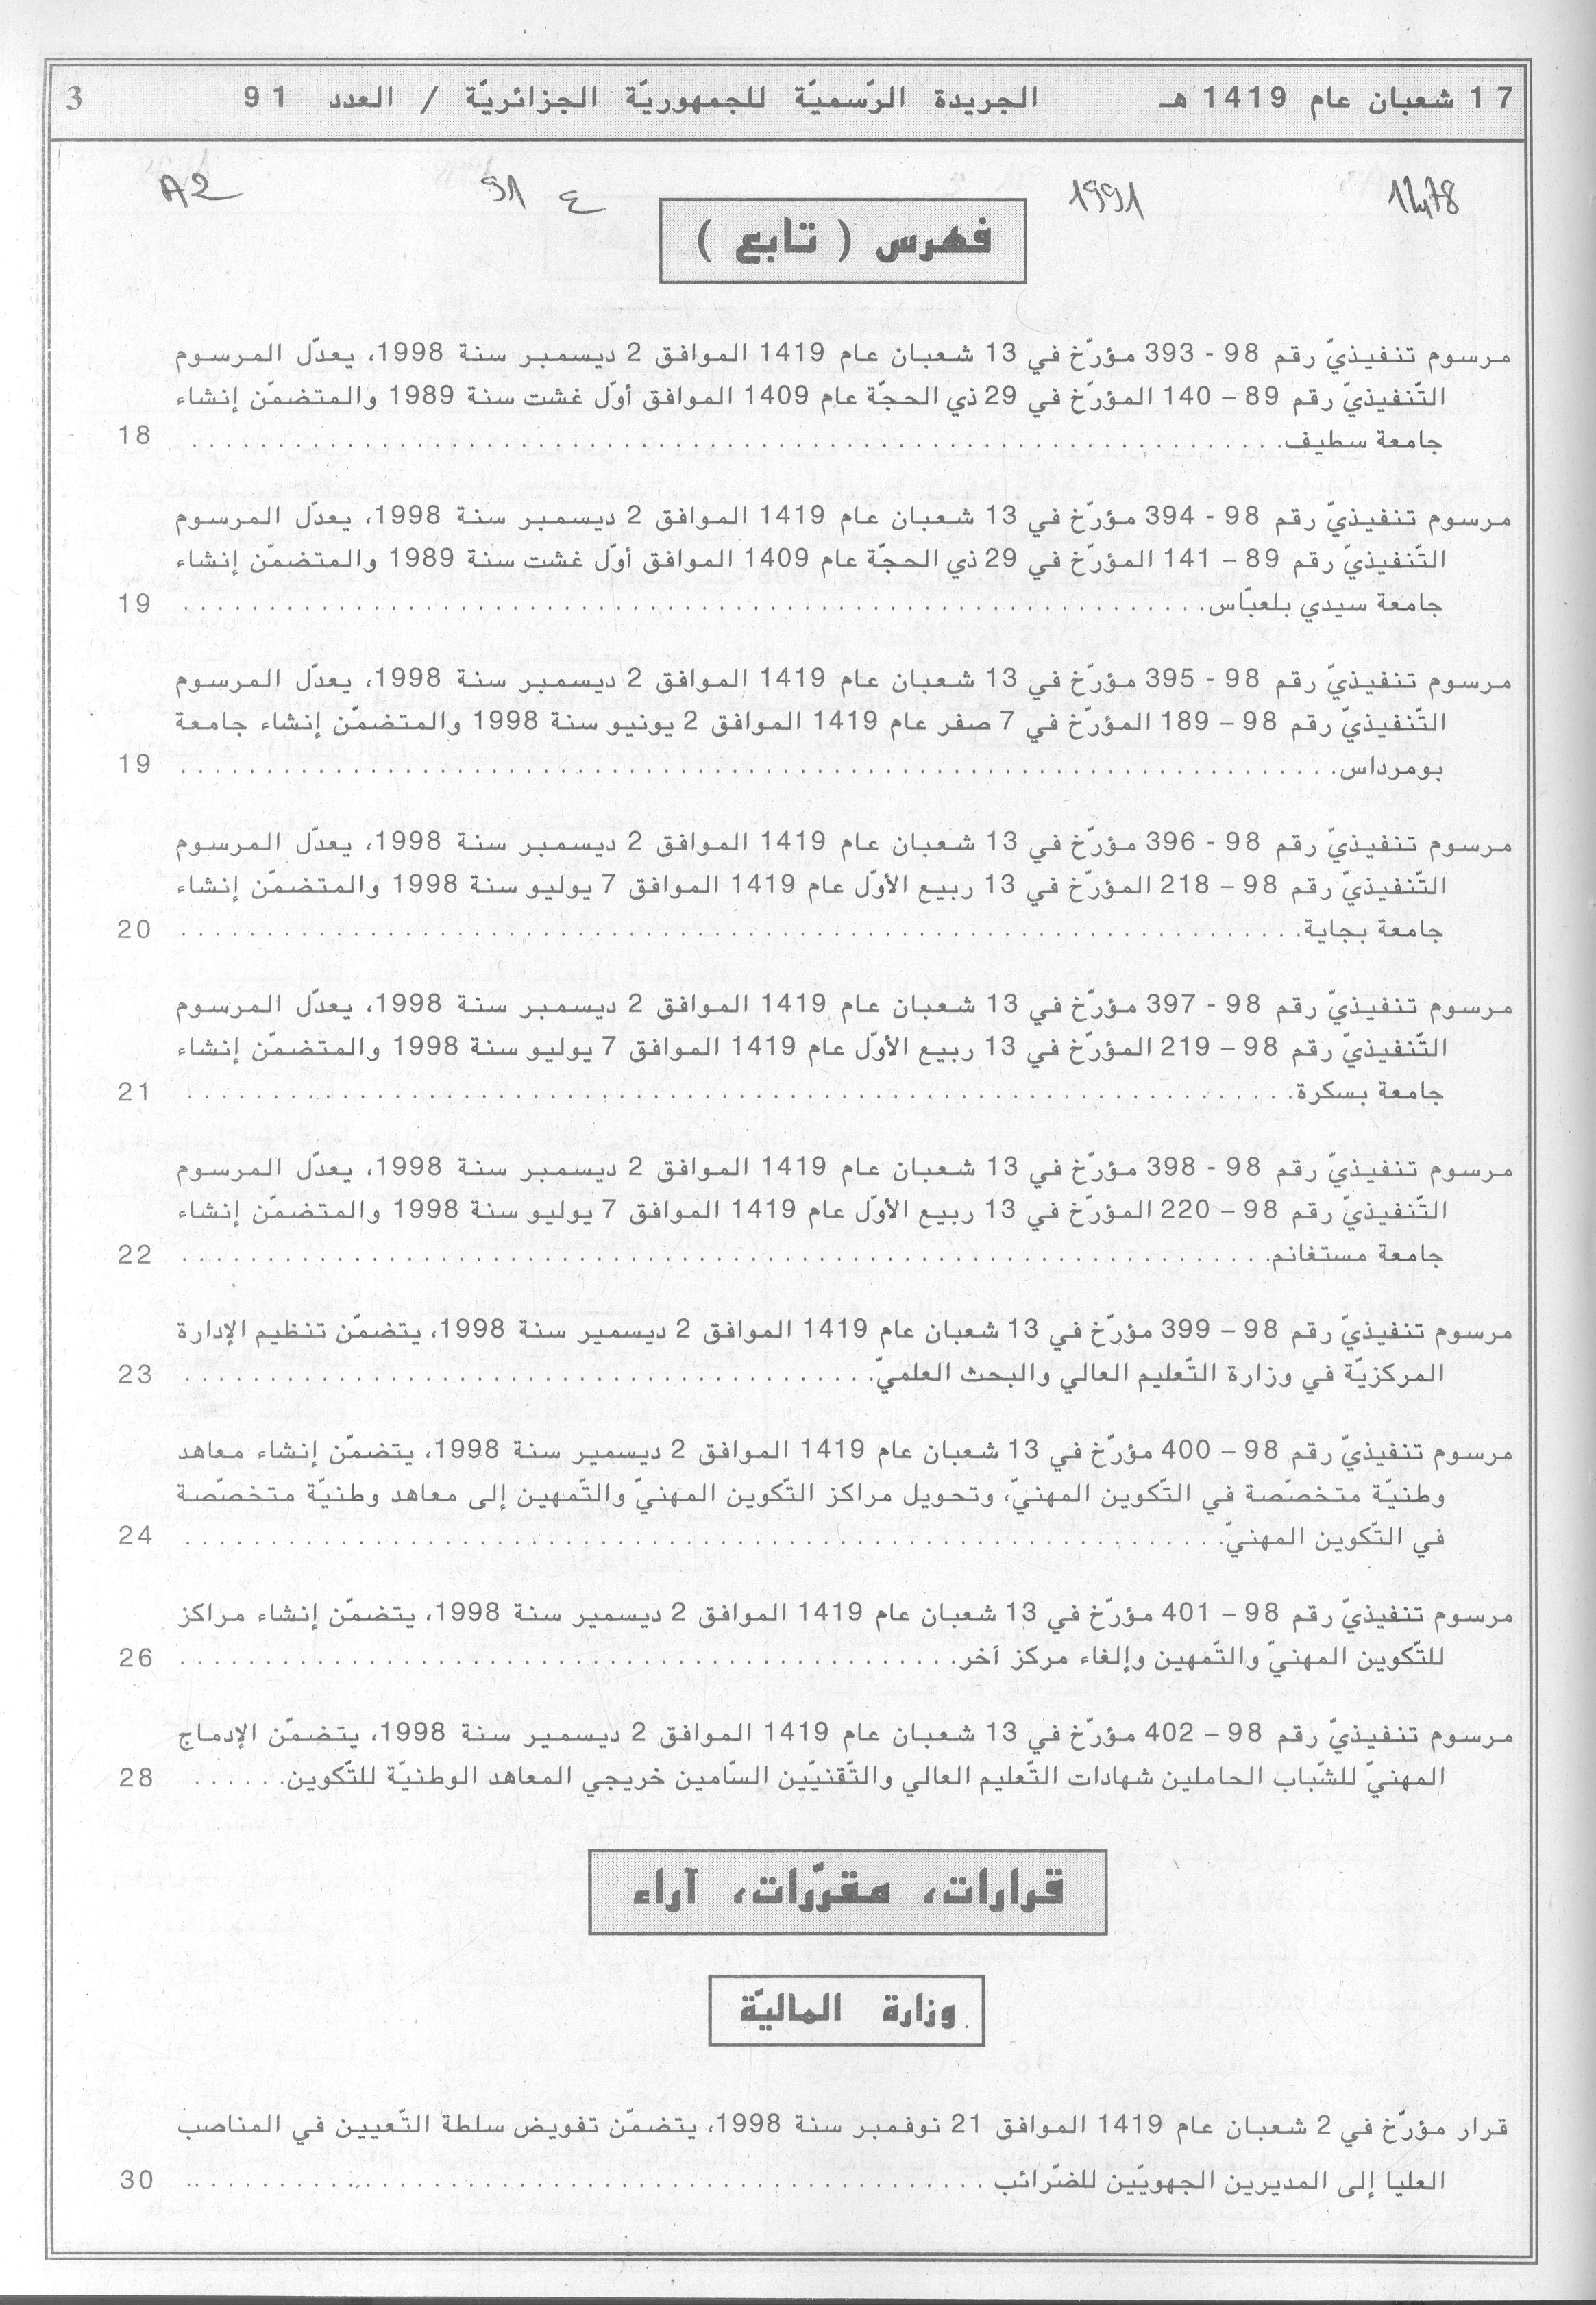 17 شعبان عام 1419 هـ الجريدة الرّسميّة للجمهوريّة الجزائريّة / العدد 91 3
A2 91 ع 1991
فهرس ( تابع )
مرسوم تنفيذيّ رقم 98 - 393 مؤرّخ في 13 شعبان عام 1419 الموافق 2 ديسمبر سنة 1998، يعدّل المرسوم
التّنفيذيّ رقم 89 – 140 المؤرّخ في 29 ذي الحجّة عام 1409 الموافق أوّل غشت سنة 1989 والمتضمّن إنشاء
جامعة سطيف. 18
مرسوم تنفيذيّ رقم 98 - 394 مؤرّخ في 13 شعبان عام 1419 الموافق 2 ديسمبر سنة 1998، يعدّل المرسوم
التّنفيذيّ رقم 89 – 141 المؤرّخ في 29 ذي الحجّة عام 1409 الموافق أوّل غشت سنة 1989 والمتضمّن إنشاء
جامعة سيدي بلعبّاس. 19
مرسوم تنفيذيّ رقم 98 - 395 مؤرّخ في 13 شعبان عام 1419 الموافق 2 ديسمبر سنة 1998، يعدّل المرسوم
التّنفيذيّ رقم 98 – 189 المؤرّخ في 7 صفر عام 1419 الموافق 2 يونيو سنة 1998 والمتضمّن إنشاء جامعة
بومرداس. 19
مرسوم تنفيذيّ رقم 98 - 396 مؤرّخ في 13 شعبان عام 1419 الموافق 2 ديسمبر سنة 1998، يعدّل المرسوم
التّنفيذيّ رقم 98 – 218 المؤرّخ في 13 ربيع الأوّل عام 1419 الموافق 7 يوليو سنة 1998 والمتضمّن إنشاء
جامعة بجاية. 20
مرسوم تنفيذيّ رقم 98 - 397 مؤرّخ في 13 شعبان عام 1419 الموافق 2 ديسمبر سنة 1998، يعدّل المرسوم
التّنفيذيّ رقم 98 – 219 المؤرّخ في 13 ربيع الأوّل عام 1419 الموافق 7 يوليو سنة 1998 والمتضمّن إنشاء
جامعة بسكرة. 21
مرسوم تنفيذيّ رقم 98 - 398 مؤرّخ في 13 شعبان عام 1419 الموافق 2 ديسمبر سنة 1998، يعدّل المرسوم
التّنفيذيّ رقم 98 – 220 المؤرّخ في 13 ربيع الأوّل عام 1419 الموافق 7 يوليو سنة 1998 والمتضمّن إنشاء
جامعة مستغانم. 22
مرسوم تنفيذيّ رقم 98 – 399 مؤرّخ في 13 شعبان عام 1419 الموافق 2 ديسمير سنة 1998، يتضمّن تنظيم الإدارة
المركزيّة في وزارة التّعليم العالي والبحث العلميّ. 23
مرسوم تنفيذيّ رقم 98 – 400 مؤرّخ في 13 شعبان عام 1419 الموافق 2 ديسمير سنة 1998، يتضمّن إنشاء معاهد
وطنيّة متخصّصة في التّكوين المهنيّ، وتحويل مراكز التّكوين المهنيّ والتّمهين إلى معاهد وطنيّة متخصّصة
في التّكوين المهنيّ. 24
مرسوم تنفيذيّ رقم 98 – 401 مؤرّخ في 13 شعبان عام 1419 الموافق 2 ديسمير سنة 1998، يتضمّن إنشاء مراكز
للتّكوين المهنيّ والتّمهين وإلغاء مركز آخر. 26
مرسوم تنفيذيّ رقم 98 – 402 مؤرّخ في 13 شعبان عام 1419 الموافق 2 ديسمير سنة 1998، يتضمّن الإدماج
المهنيّ للشّباب الحاملين شهادات التّعليم العالي والتّقنيّين السّامين خريجي المعاهد الوطنيّة للتّكوين. 28
قرارات، مقرّرات، آراء
وزارة الماليّة
قرار مؤرّخ في 2 شعبان عام 1419 الموافق 21 نوفمبر سنة 1998، يتضمّن تفويض سلطة التّعيين في المناصب
العليا إلى المديرين الجهويّين للضّرائب 30